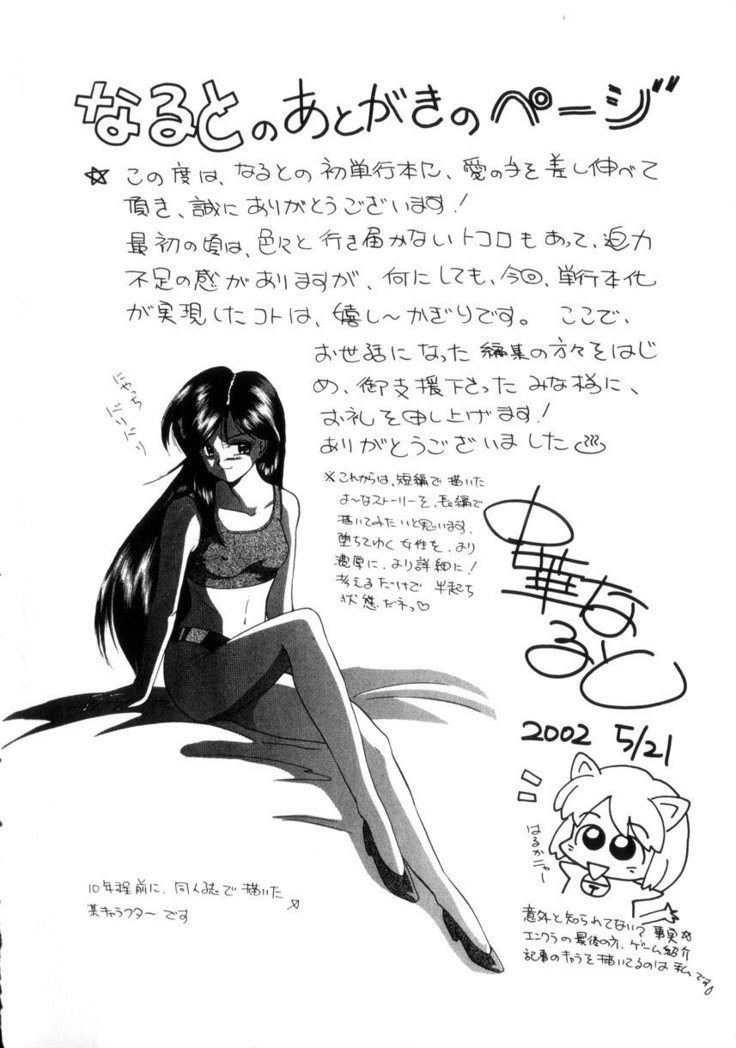 なるとのあとがきのページ
☆ この度は、なるとの初単行本に、愛の手を差し伸べて
頂き、誠にありがとうございます!
最初の頃は、色々と行き届かないトコロもあって、迫力
不足の感がありますが、何にしても、今回、単行本化
が実現したコトは、嬉し〜かぎりです。 ここで、
お世話になった 編集の方々をはじ
め、御支援下さった みな様に、
お礼を申し上げます!
ありがとうございました♨
にゃっち
ドリドリ
※これからは、短編で描いた
よ〜なストーリーを、長編で
描いてみたいと思います。
堕ちてゆく女性を、より
濃厚に、より詳細に!
考えるだけで 半起ち
状態だネっ♡
中華なると
2002 5/21
はるかニャー
〒
10年程前に、同人誌で描いた
某キャラクターです
意外と知られてない? 事実☆
エンクラの最後の方、ゲーム紹介
記事のキャラを描いてるのは 私です。